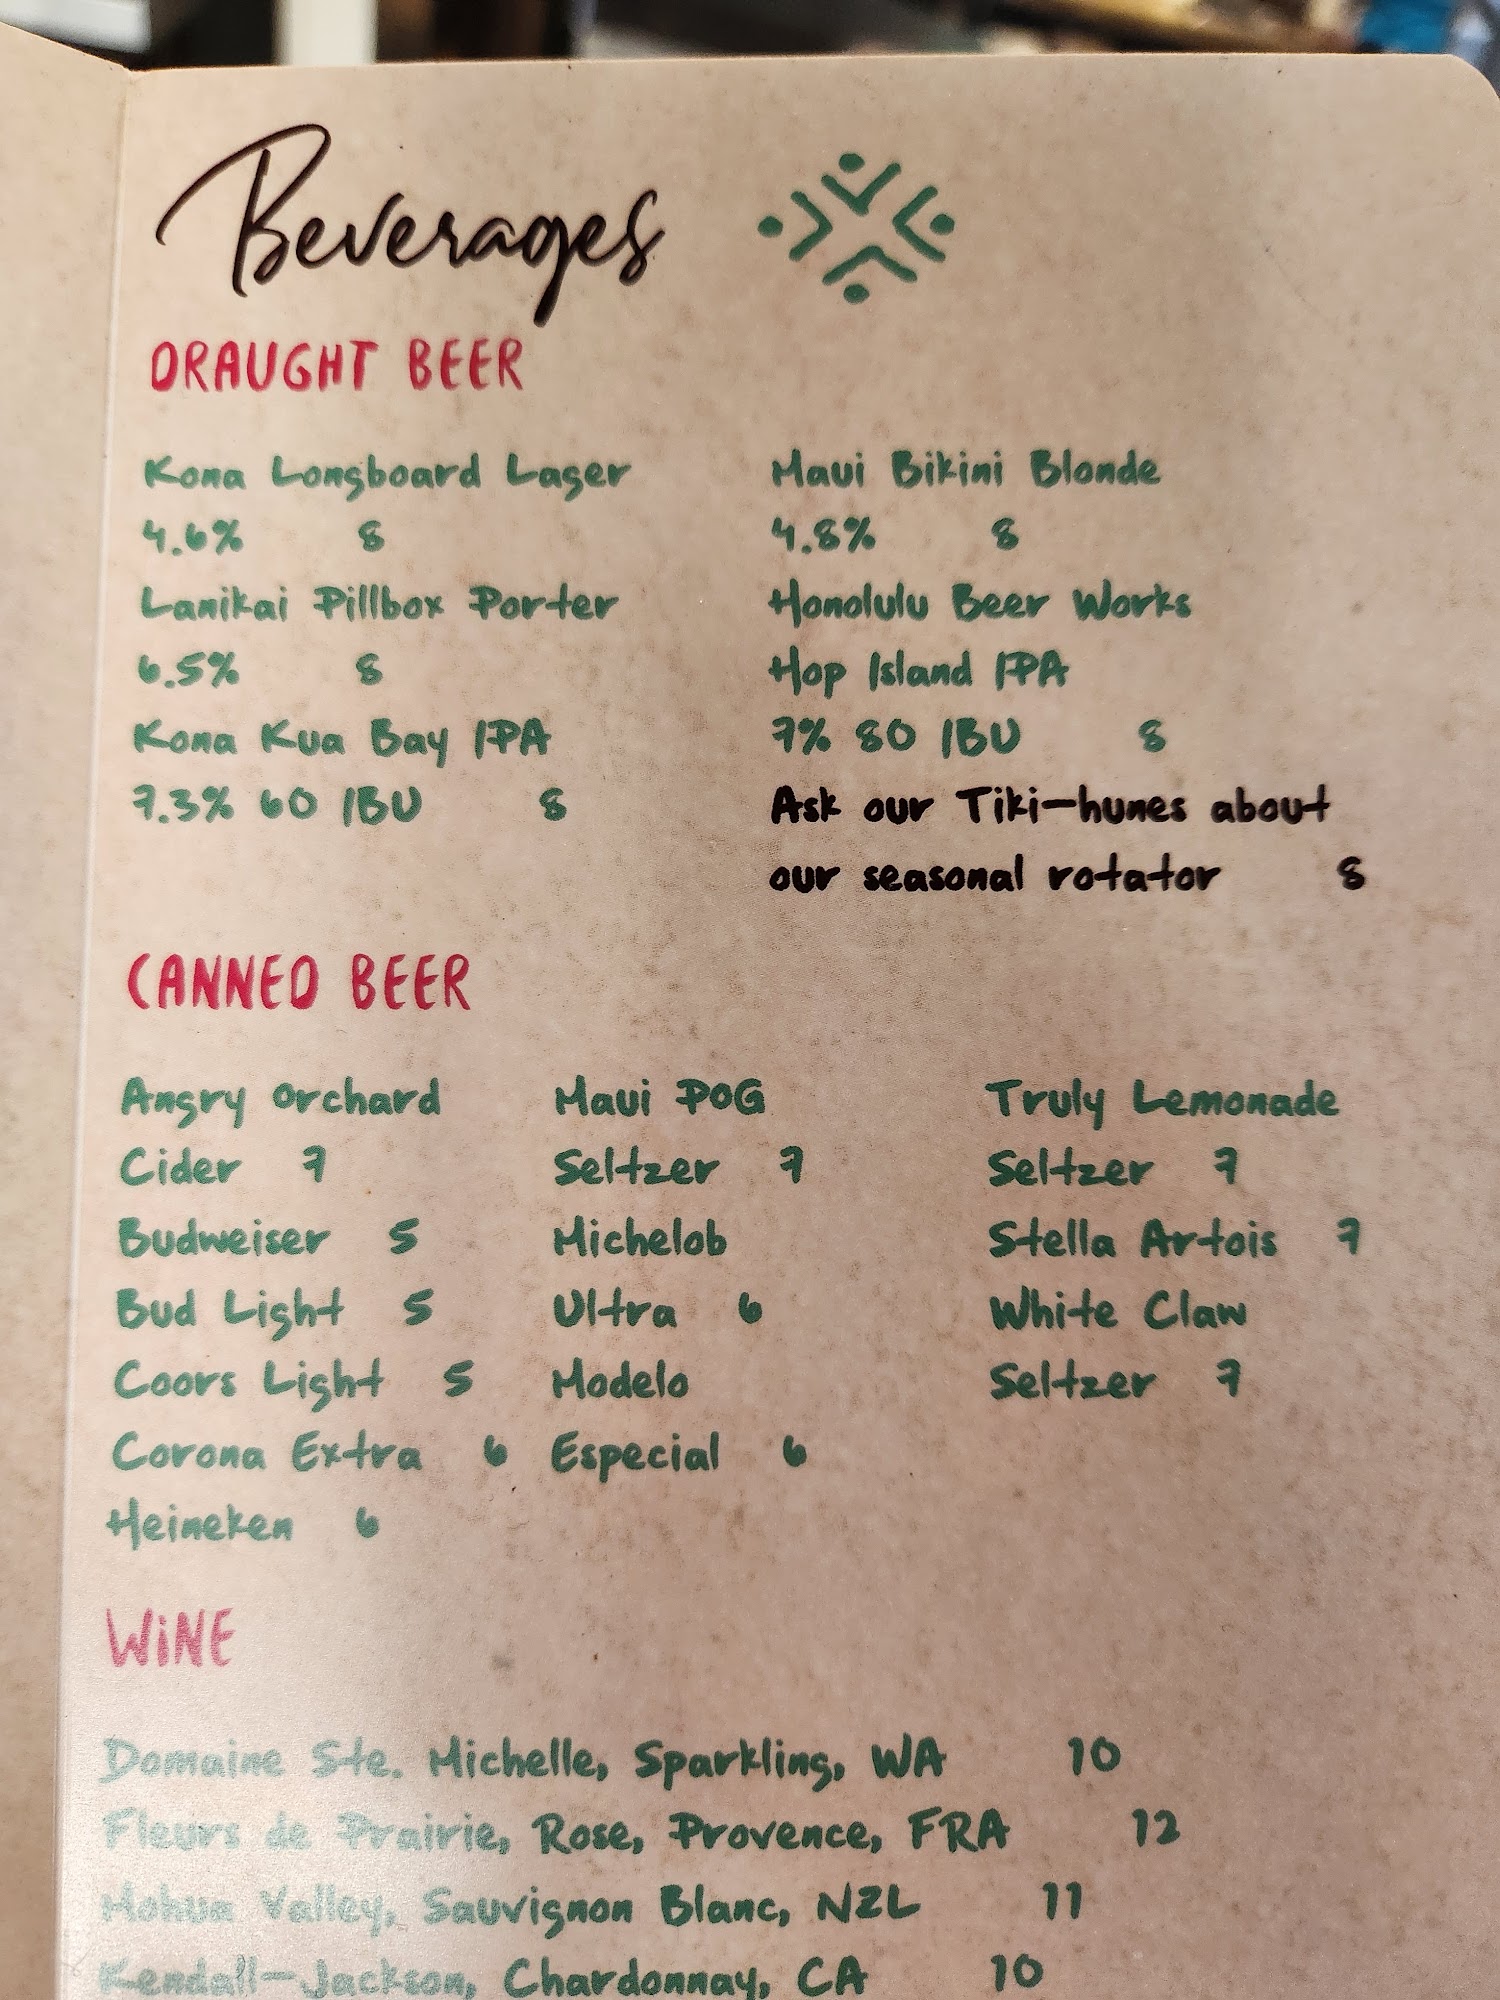 Beverages
DRAUGHT BEER
Kona Longboard Lager
4.6% 8
Lanikai Pillbox Porter
6.5% 8
Kona Kua Bay IPA
7.3% 60 IBU 8
Maui Bikini Blonde
4.8% 8
Honolulu Beer Works
Hop Island IPA
7% 80 IBU 8
Ask our Tiki-hunes about
our seasonal rotator 8
CANNED BEER
Angry Orchard
Cider 7
Budweiser 5
Bud Light 5
Coors Light 5
Corona Extra 6
Heineken 6
Maui POG
Seltzer 7
Michelob
Ultra 6
Modelo
Especial 6
Truly Lemonade
Seltzer 7
Stella Artois 7
White Claw
Seltzer 7
WINE
Domaine Ste. Michelle, Sparkling, WA 10
Fleurs de Prairie, Rose, Provence, FRA 12
Mohua Valley, Sauvignon Blanc, NZL 11
Kendall-Jackson, Chardonnay, CA 10